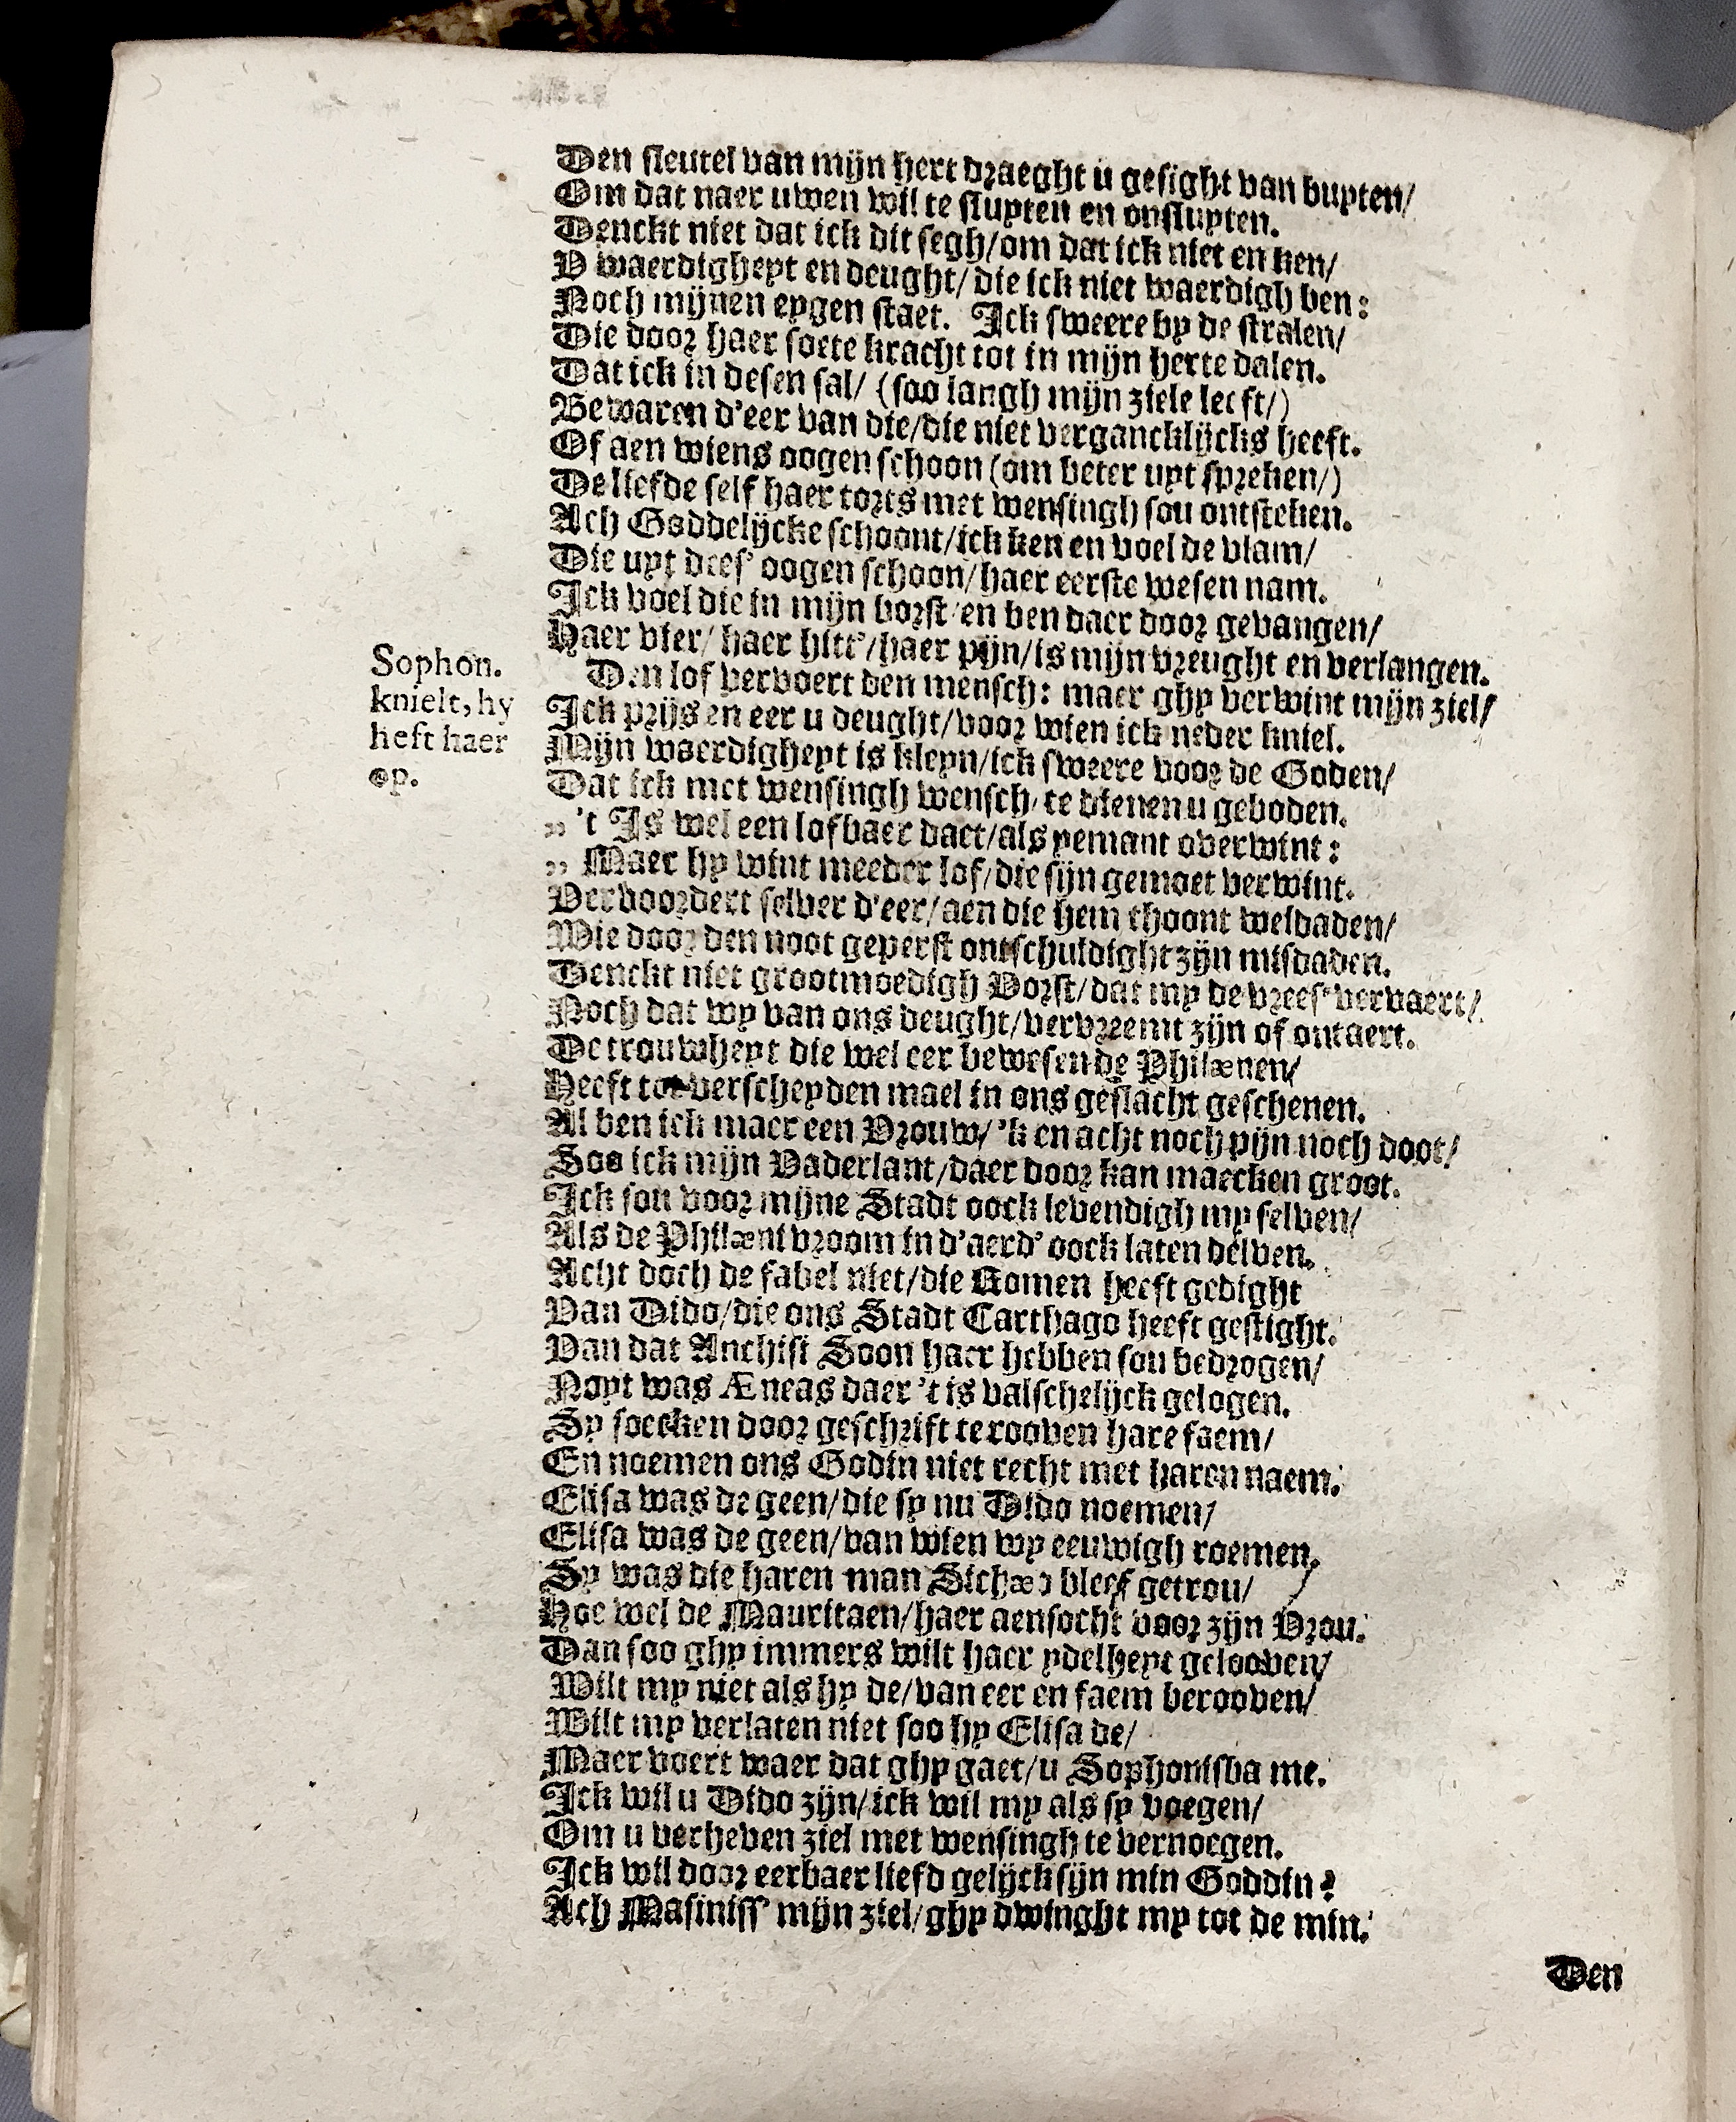 Den sleutel van mijn hert draeght u gesight van buyten/
Om dat naer uwen wil te sluyten en onsluyten.
Denckt niet dat ick dit segh/om dat ick niet en ken/
V waerdigheyt en deught/die ick niet waerdigh ben:
Noch mijnen eygen staet. Ick sweere by de stralen/
Die door haer soete kracht tot in mijn herte dalen.
Dat ick in desen sal/ (soo langh mijn ziele leeft/)
Bewaren d'eer van die/die niet vergancklijcks heeft.
Of aen wiens oogen schoon (om beter uyt spreken/)
De liefde self haer torts met wensingh sou ontsteken.
Ach Goddelijcke schoont/ick ken en voel de vlam/
Die uyt dees' oogen schoon/haer eerste wesen nam.
Ick voel die in mijn borst/en ben daer door gevangen/
Haer vier/ haer hitt'/haer pijn/is mijn vreught en verlangen.
Sophon.
knielt, hy
heft haer
op.
Den lof vervoert den mensch: maer ghy verwint mijn ziel/
Ick prijs en eer u deught/voor wien ick neder kniel.
Mijn waerdigheyt is kleyn/ick sweere voor de Goden/
Dat ick met wensingh wensch/te dienen u geboden.
„ 't Is wel een lofbaer daet/als yemant overwint:
„ Maer hy wint meeder lof/die sijn gemoet verwint.
Vervoordert selver d'eer/aen die hem thoont weldaden/
Wie door den noot geperst ontschuldight zijn misdaden.
Denckt niet grootmoedigh Vorst/dat my de vrees' vervaert/
Noch dat wy van ons deught/vervreemt zijn of ontaert.
De trouwheyt die wel eer bewesen de Philænen/
Heeft tot verscheyden mael in ons geslacht geschenen.
Al ben ick maer een Vrouw/'k en acht noch pijn noch doot/
Soo ick mijn Vaderlant/daer door kan maecken groot.
Ick sou voor mijne Stadt oock levendigh my selven/
Als de Philæni vroom in d'aerd' oock laten delven.
Acht doch de fabel niet/die Romen heeft gedight
Van Dido/die ons Stadt Carthago heeft gestight.
Van dat Anchisi Soon haer hebben sou bedrogen/
Noyt was Æneas daer 't is valschelijck gelogen.
Sy soecken door geschrift te rooven hare faem/
En noemen ons Godin niet recht met haren naem.
Elisa was de geen/die sy nu Dido noemen/
Elisa was de geen/van wien wy eeuwigh roemen.
Sy was die haren man Sichæo bleef getrou/
Hoe wel de Mauritaen/haer aensocht voor zijn Vrou.
Dan soo ghy immers wilt haer ydelheyt gelooven/
Wilt my niet als hy de/van eer en faem berooven/
Wilt my verlaten niet soo hy Elisa de/
Maer voert waer dat ghy gaet/u Sophonisba me.
Ick wil u Dido zijn/ick wil my als sy voegen/
Om u verheven ziel met wensingh te vernoegen.
Ick wil door eerbaer liefd gelijck sijn min Goddin?
Ach Masiniss' mijn ziel/ghy dwinght my tot de min.
Den